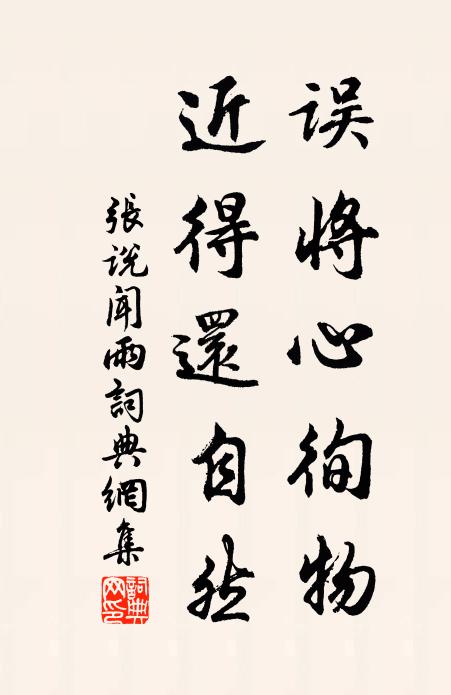 误将心徇物
近得還自然
張说闻雨詞典網集
詞典网印